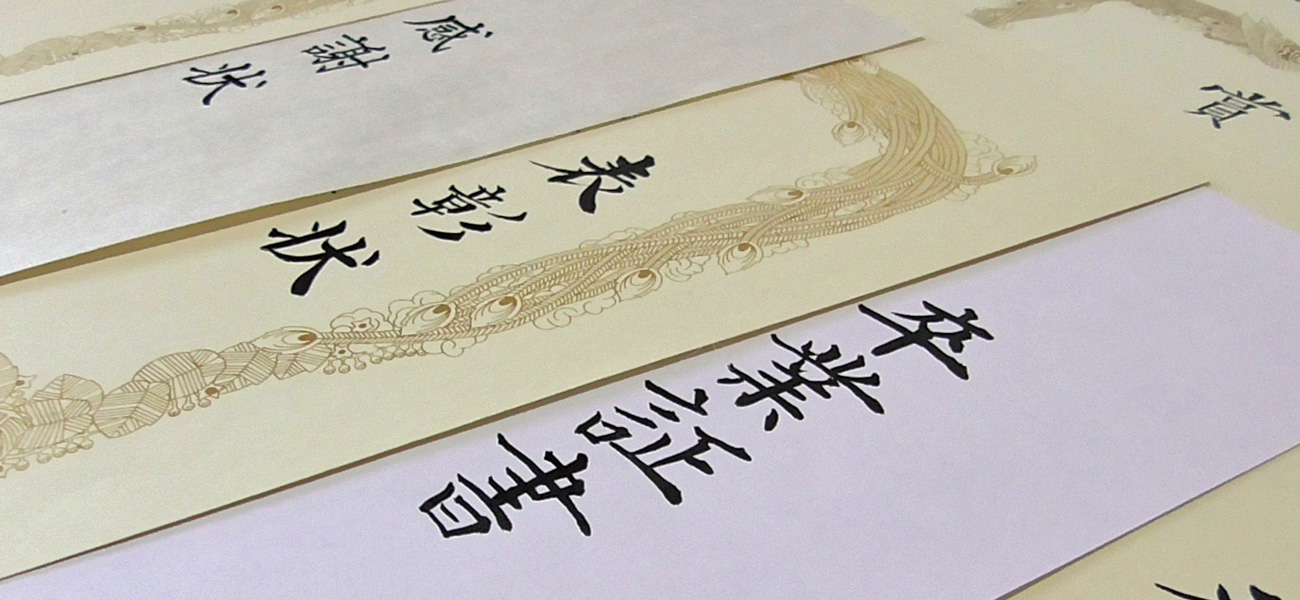 感謝状
表彰状
賞
卒業証書